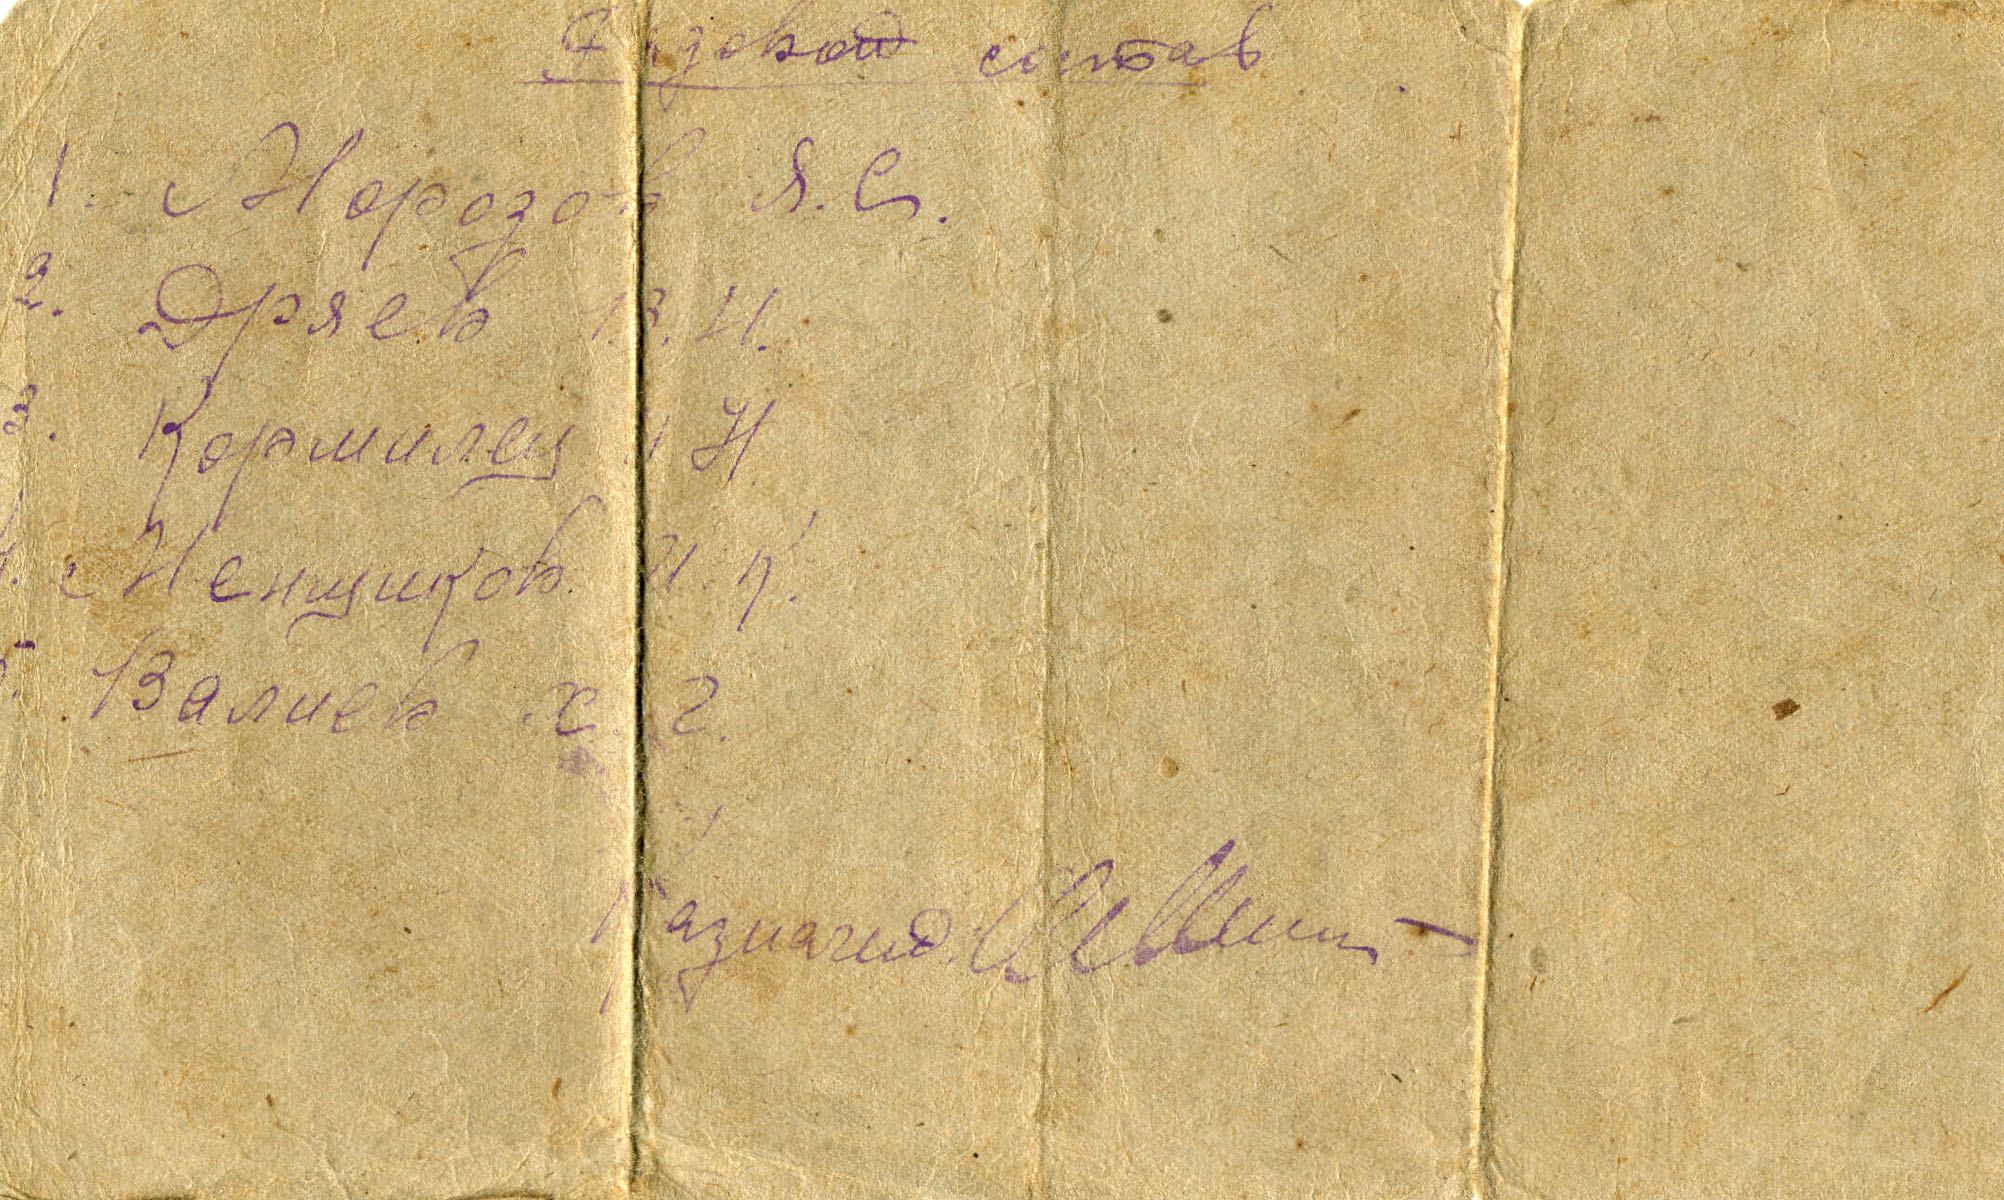 Рядовой состав
1. Морозов Я. С.
2. Дряев В. И.
3. Кормилец Н.
4. Менщиков И. К.
5. Валиев Х. Г.
Казначей